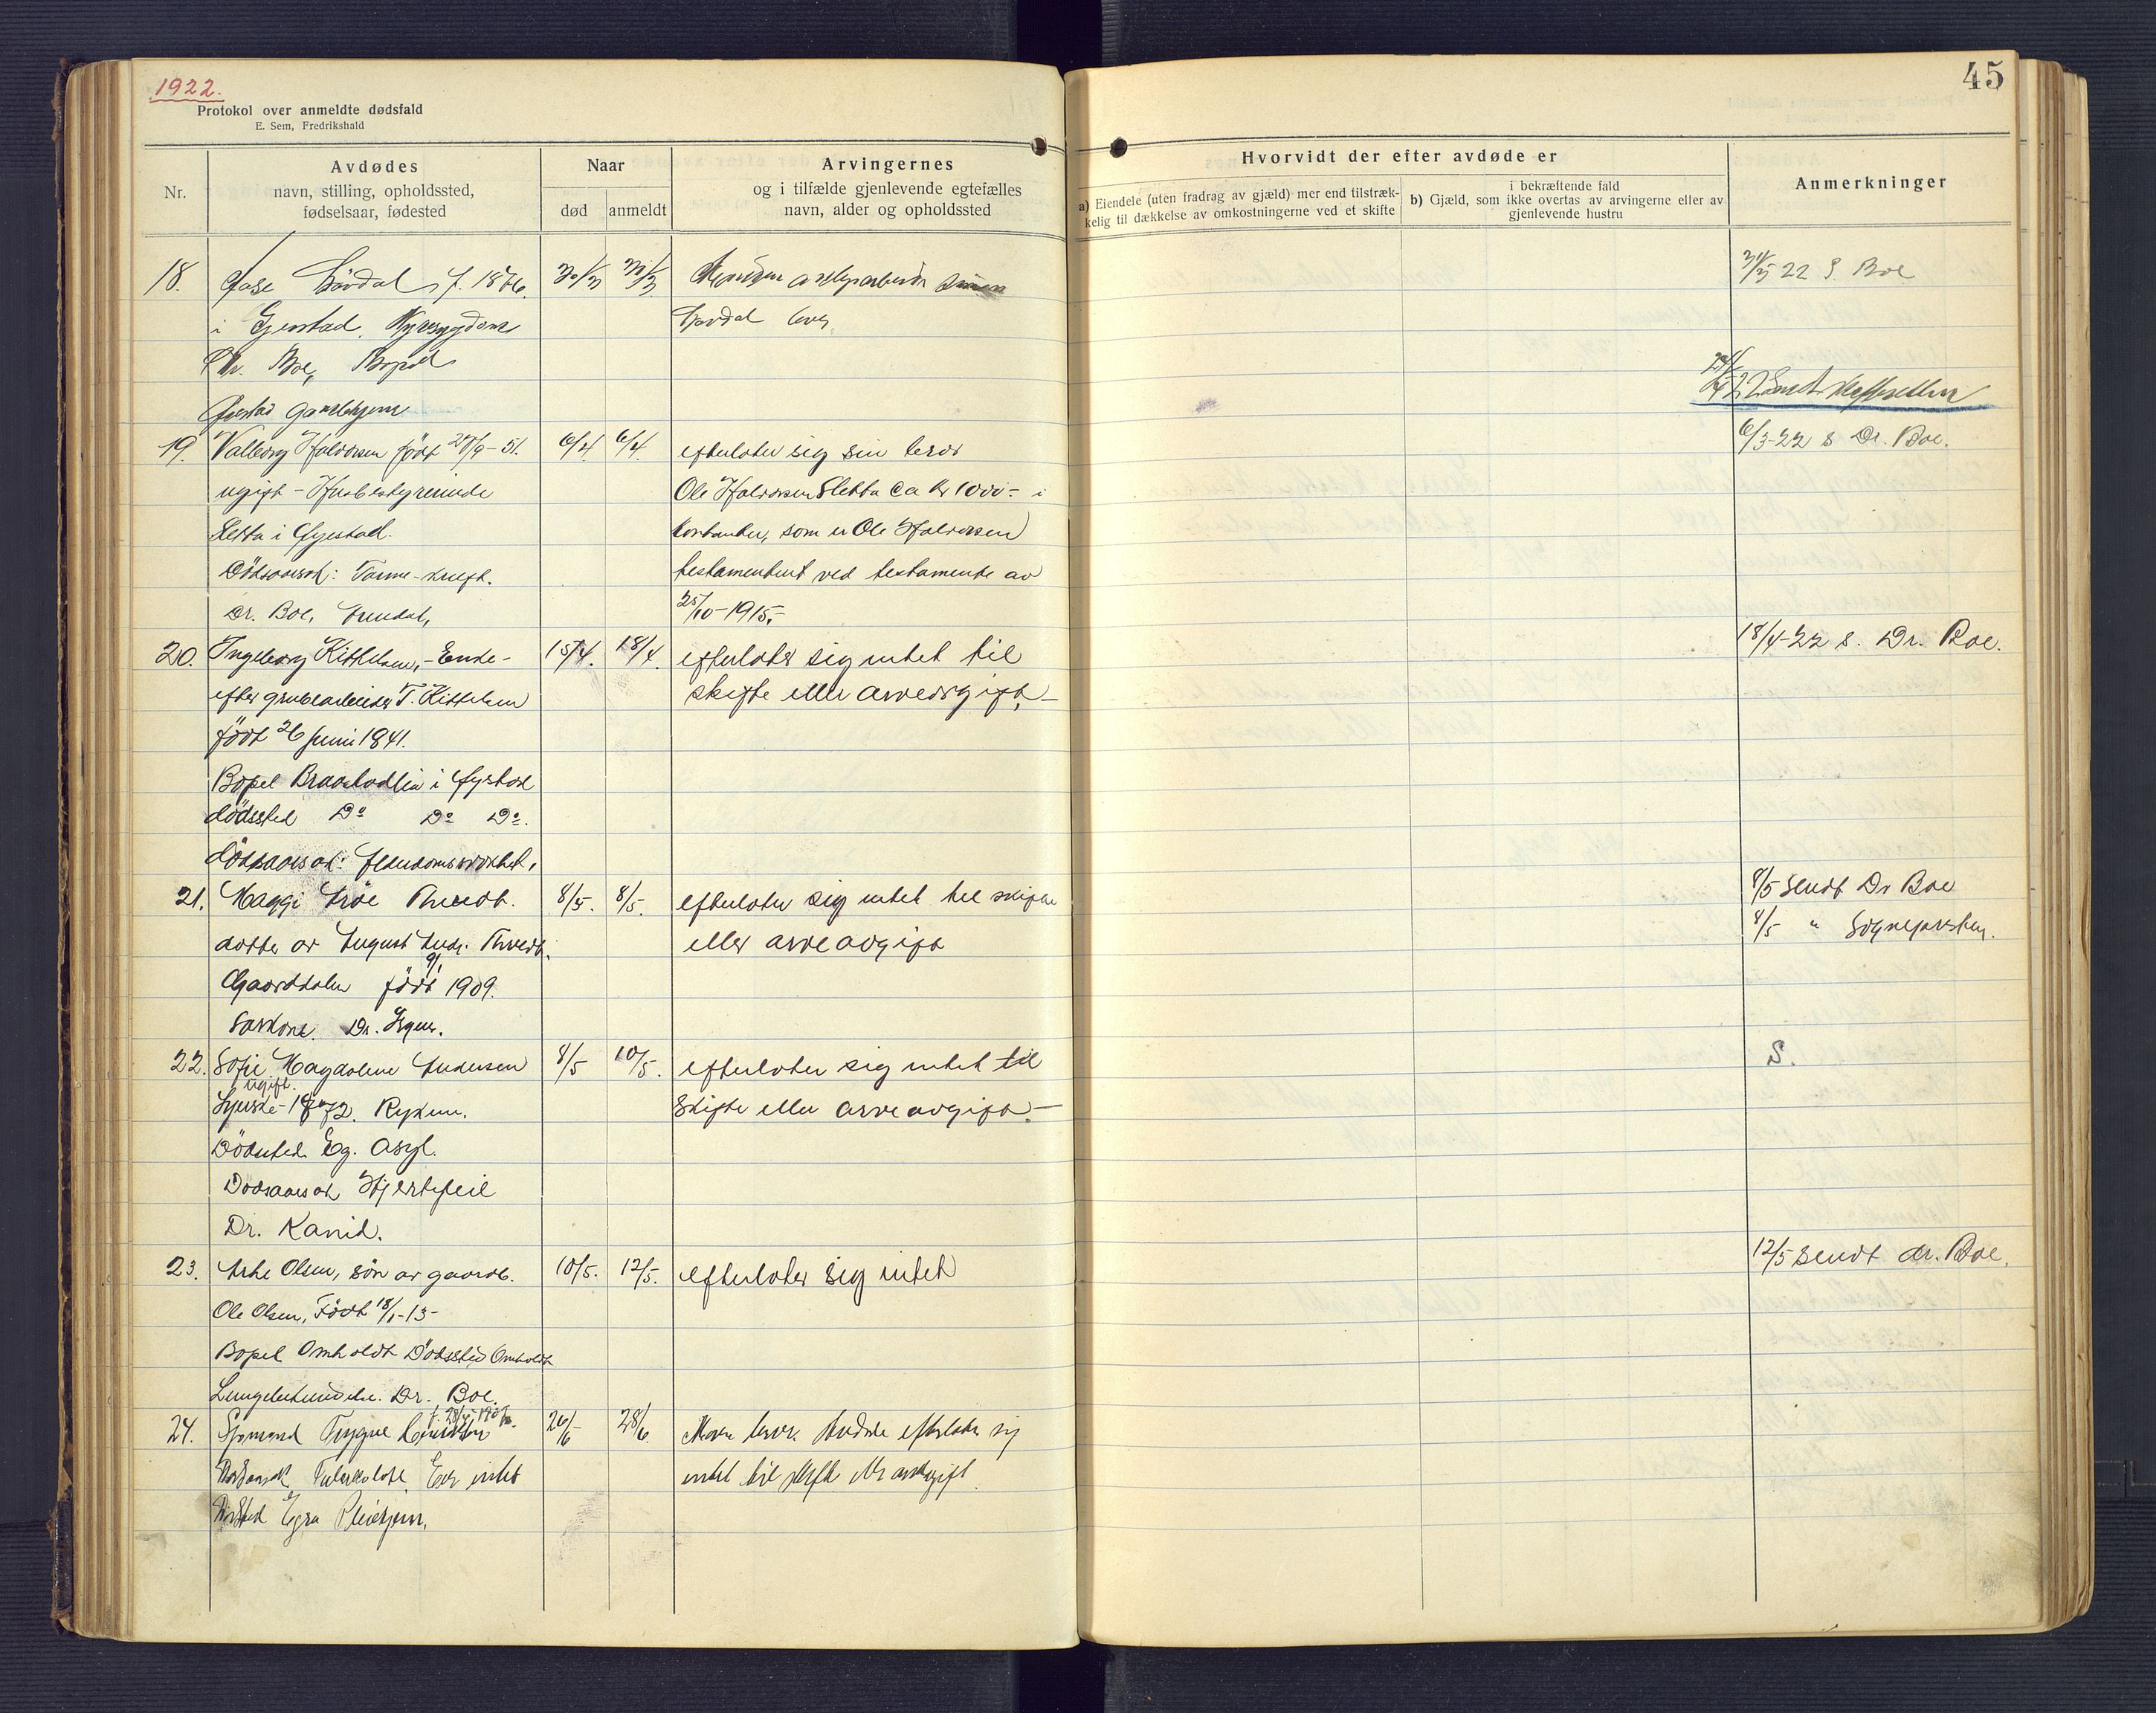 1922.
45
Protokol over anmeldte dødsfald
E. Sem, Fredrikshald
Nr.
Avdødes
navn, stilling, opholdssted,
fødselsaar, fødested
Naar
død
anmeldt
Arvingernes
og i tilfælde gjenlevende egtefælles
navn, alder og opholdssted
Hvorvidt der efter avdøde er
a) Eiendele (uten fradrag av gjæld) mer end tilstræk-
kelig til dækkelse av omkostningerne ved et skifte
i bekræftende fald
b) Gjæld, som ikke overtas av arvingerne eller av
gjenlevende hustru
Anmerkninger
18.
f. 1876
30/3
31/3
31/3 22 S Boe
i Gjerstad. Nyresygdom
lever
Dr. Boe, Bopæl
Gjerstad Gamlehjem
19.
Valborg Halvorsen født 27/9-51.
6/4
6/4.
efterlater sig sin bror
6/3-22 s Dr. Boe.
ugift - Husbestyrerinde
Ole Halvorsen Sletta ca kr 1000- i
Sletta i Gjerstad.
kontanter, som er Ole Halvorsen
Dödsaarsak: Tarm-kræft.
testamentert ved testamente av
Dr. Boe,
25/10-1915.
20.
Ingeborg Kittelsen, - Enke-
15/4.
18/4.
efterlater sig intet til
18/4-22 s. Dr. Boe.
efter grubearbeider T. Kittelsen
skifte eller arveavgift.-
født 26 juni 1841.
Bopel Braastadlia i Gjerstad
dödssted Do Do Do.
dödsaarsak: Alderdomssvakhet.
21.
8/5.
8/5.
efterlater sig intet til skifte
8/5 Sendt Dr Boe
datter av August Andr.
eller arveavgift
8/5 " Sognepresten.
født 9/1 1909.
Sarkom. Dr.
22.
Sofie Magdalene Andersen
8/5
10/5.
efterlater sig intet til
S.
ugift.
1872.
skifte eller arveavgift.-
Dödssted. Eg. Asyl.
Dødsaarsak Hjertefeil
Dr.
23.
Olsen, sön av gaardb.
10/5.
12/5.
efterlater sig intet
12/5 Sendt dr. Boe.
Ole Olsen, Født 18/1-13-
Bopel Omholdt Dödssted Omholdt
Lungebetændelse. Dr. Boe.
24.
Sjømand Trygve
26/6
28/6.
Moren lever. Avdøde efterlater sig
Dødsaarsak Tuberkulose. Eier intet
intet til skifte eller arveavgift.
Dødssted Egra Pleiehjem.